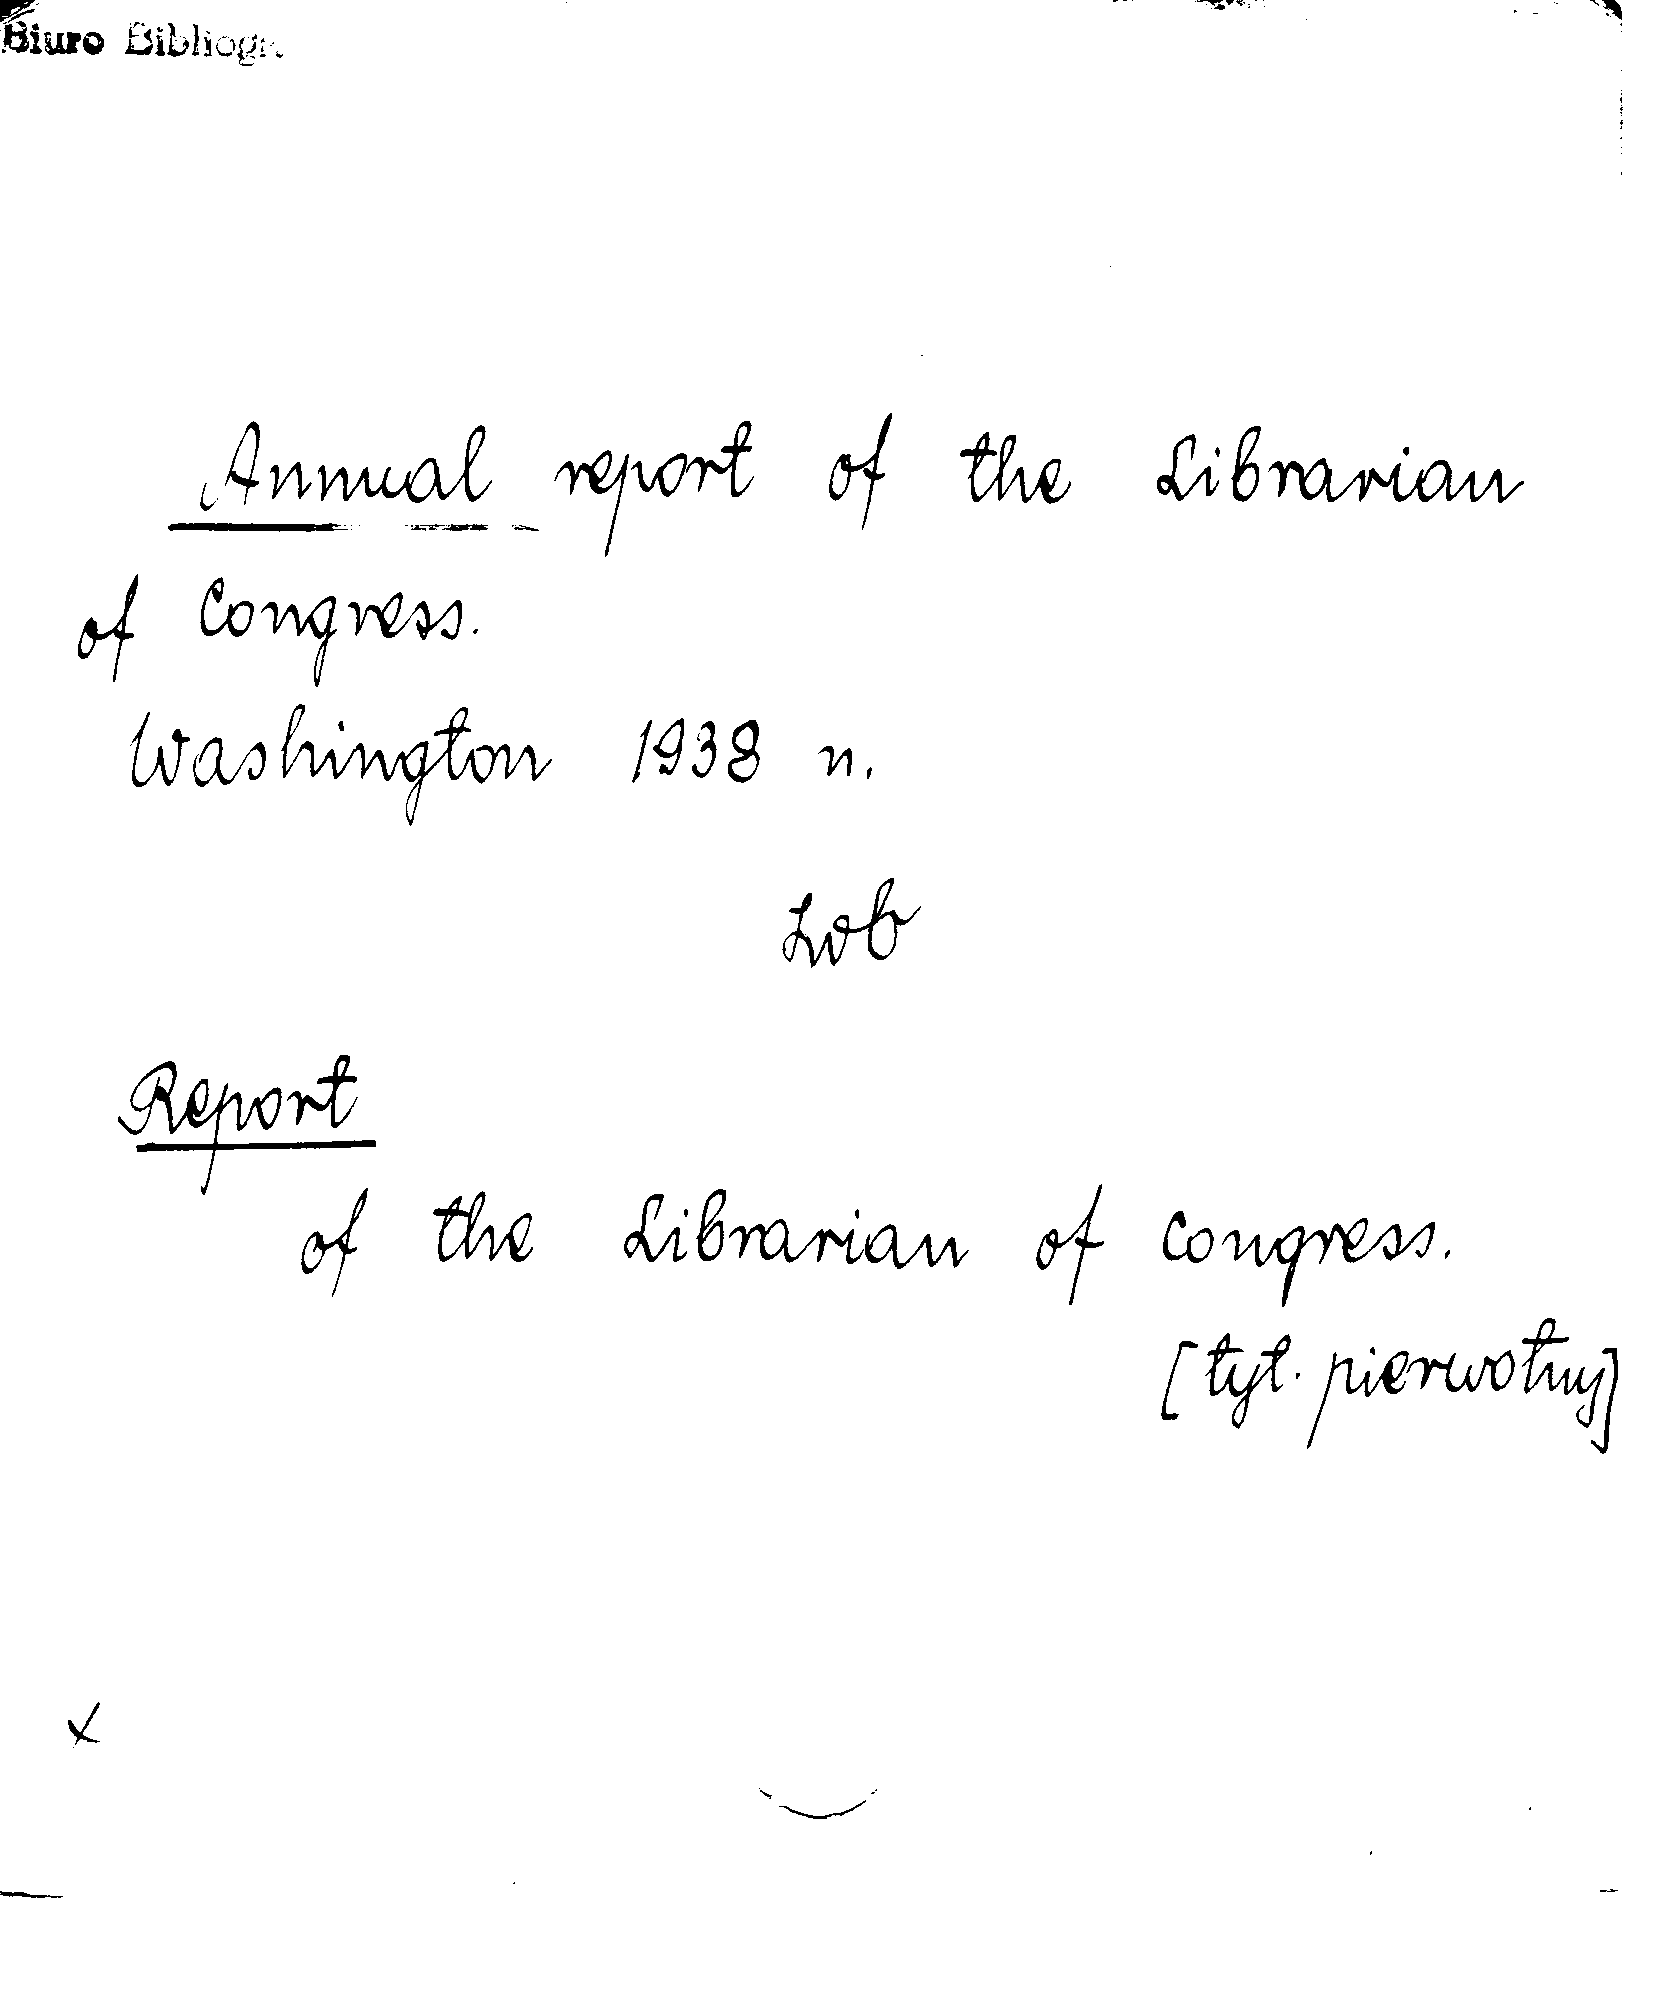 Biuro Bibliogr.
Annual report of the Librarian
of Congress.
Washington 1938 n.
Lob
Report
of the Librarian of Congress.
[tyt. pierwotny]
x